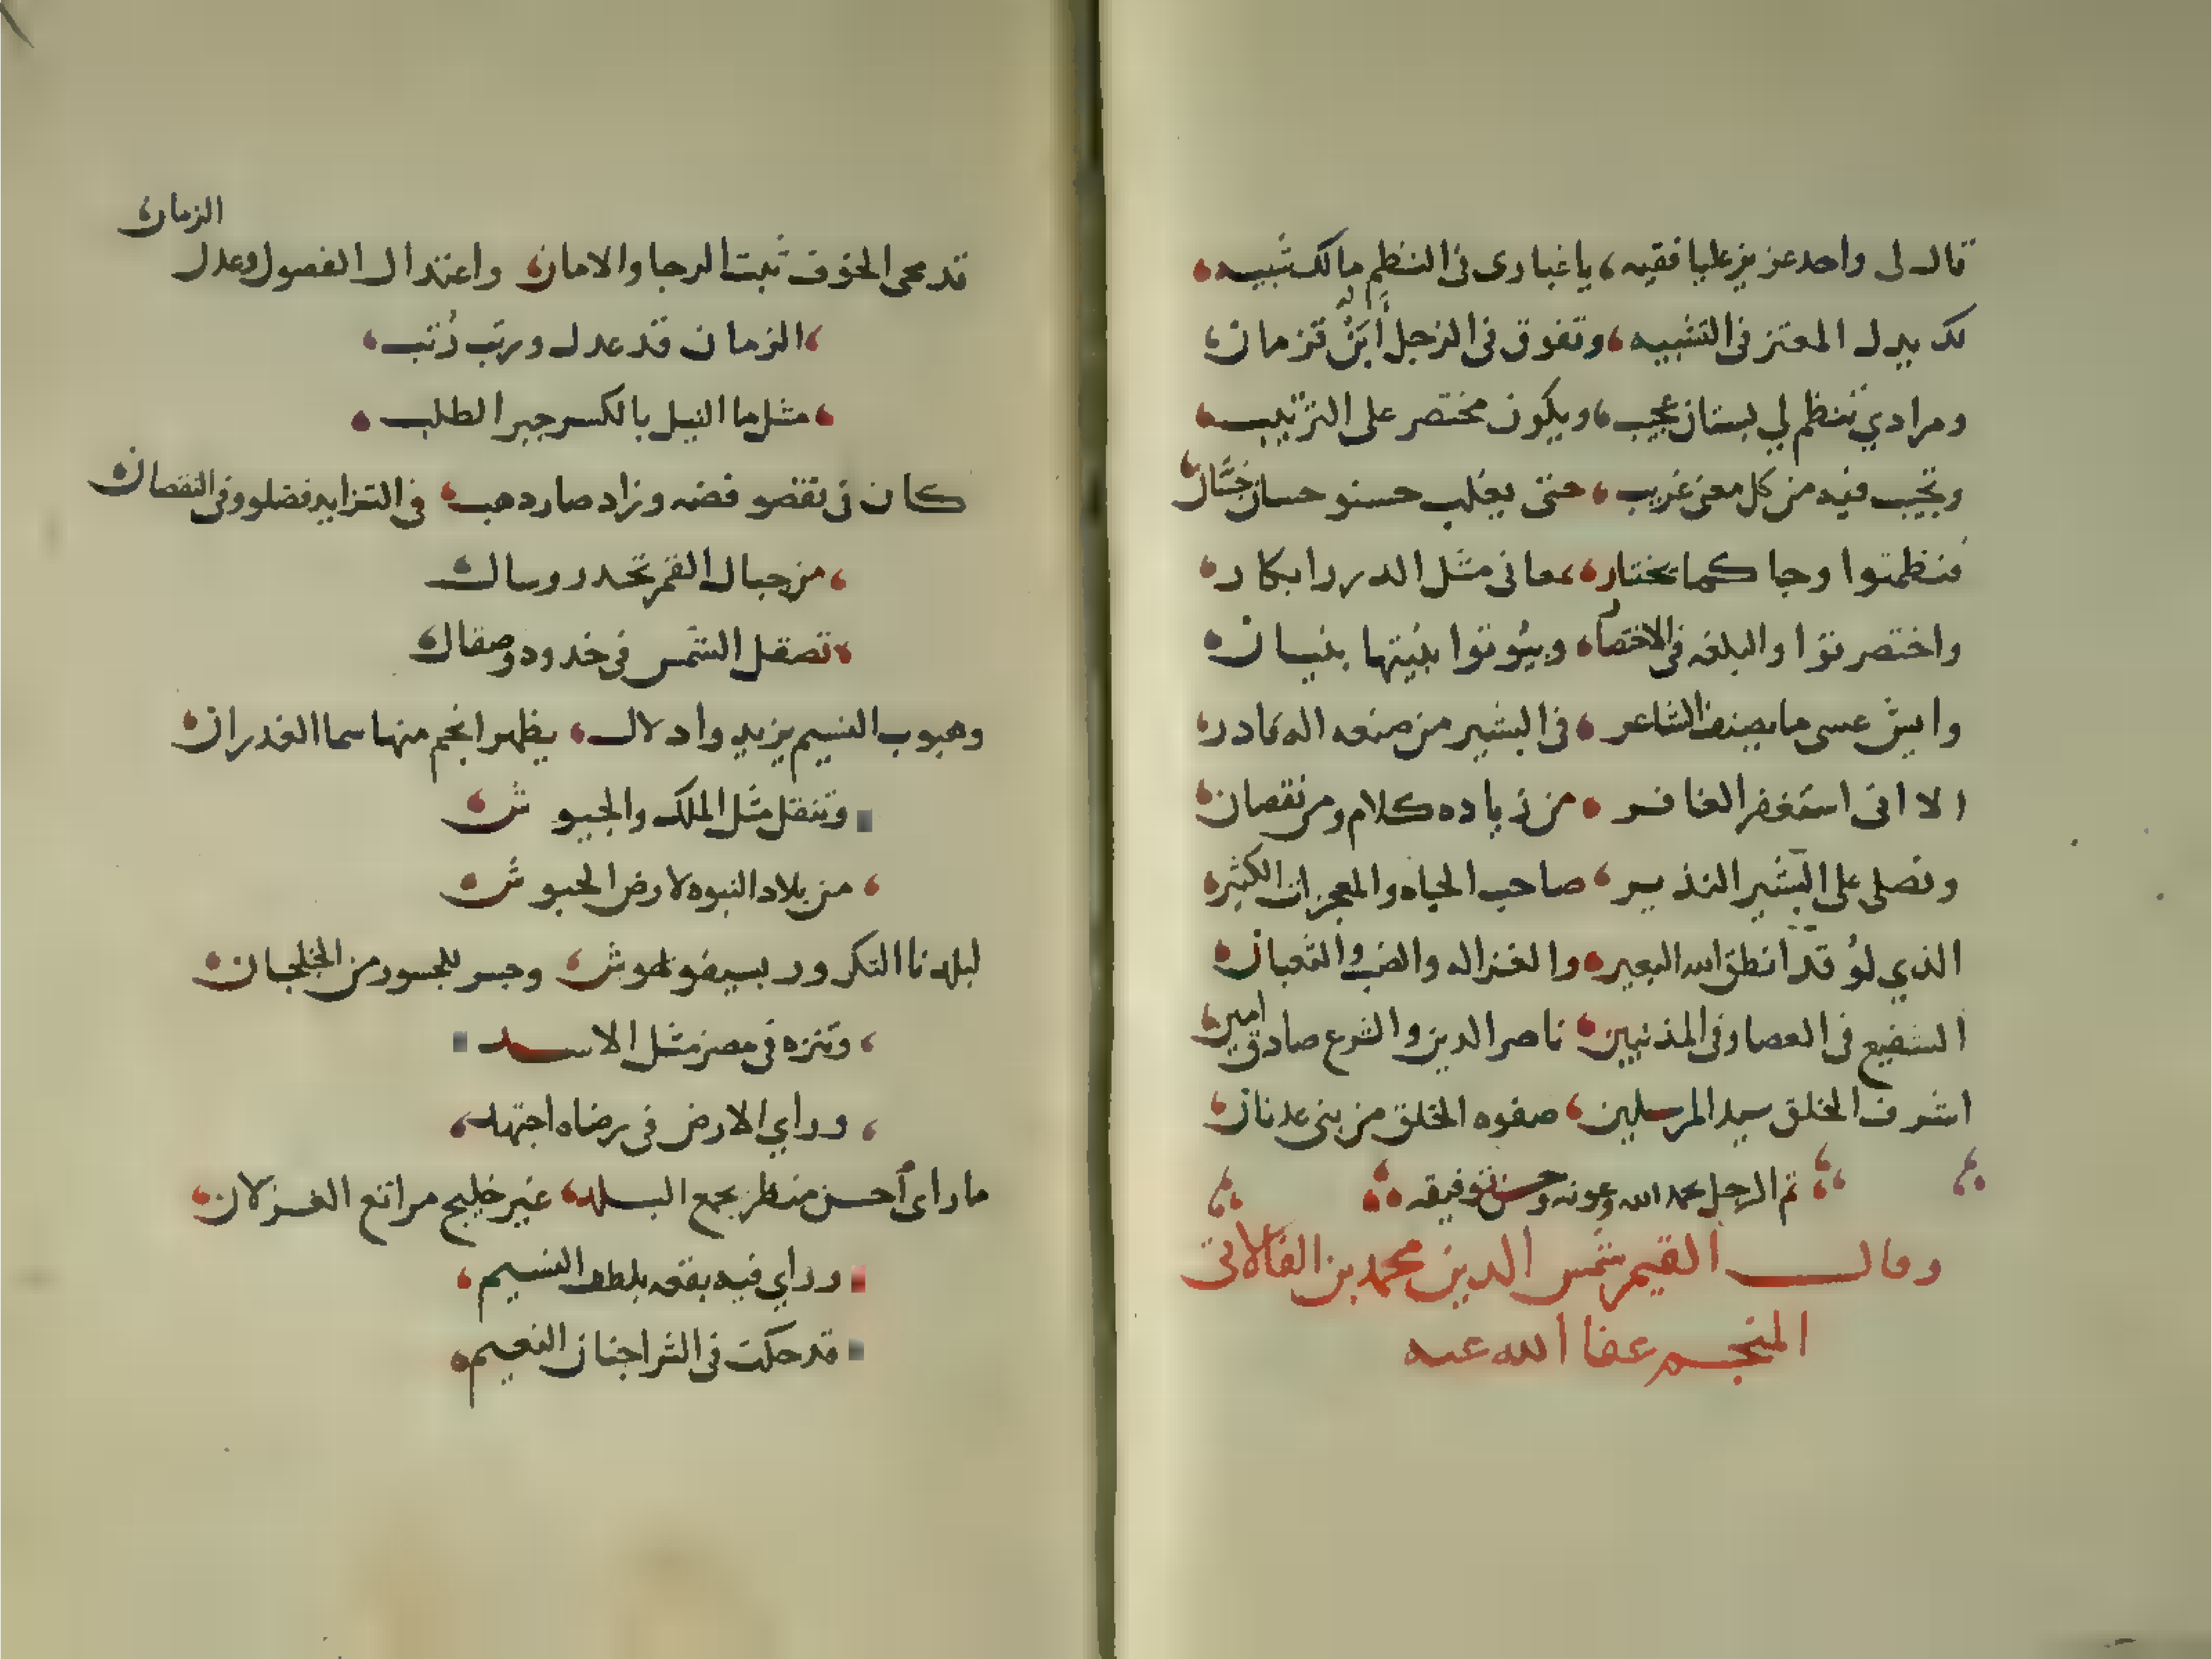 قال لى واحد عزيز عليا فقيه، ياغبارى فى النظم مالك شبيه
لك يدل المعتز فى التشبيه، وتفوق فى الزجل أبن قزمان
ومرادي تنظم لي بستان عجيب، ويكون مختصر على الترتيب
وتجيب فيه من كل معنى غريب، حتى يغلب حسنو حسان
فنظمتوا وجا كما تختار، معانى مثل الدرر ابكار
واختصرتوا والبلغه فى الاختصار، وبيوتوا بنيتها بنيان
وايش عسى مايصنف الشاعر، فى البشير من صنعه اله قادر
الا انى استغفر الغافر، من زياده كلام ومن نقصان
ونصلى على البشير النذير، صاحب الجاه والمعجزات الكثيره
الذي لو قد انطق الله البعير، والغزاله والضب والثعبان
الشفيع فى العصا وفى المذنبين، ناصر الدين والشرع صادق امين
اشرف الخلق سيد المرسلين، صفوه الخلق من بنى عدنان
تم الزجل بحمد الله وعونه وحسن توفيقه
وقال القيم شمس الدين محمد بن الفالاتى
المنجم عفا الله عنه
قد محى الخوف ثبت الرجا والامان، واعتدال الفصول وعدل الزمان
الزمان قد عدل ورتب رُتب
مثل ما النيل بالكسر جبر الطلب
كان فى نقصو فضه وزاد صار دهب، فى التزايد فضلو وفى النقصان
من جبال القمر تحدر وسال
تصقل الشمس فى خدودو صقال
وهبوب النسيم يزيد وادلال، يظهر انجم منها سما الغدران
وتنقل مثل الملك والجيوش
من بلاد النوبه لارض الحبوش
لبلدنا التكرور بسيفو يهوش، وجسر للجسور من الخلجان
وتنزه فى مصر مثل الاسد
وراي الارض فى رضاه اجتهد
ماراى أحسن منظر بجمع البلد، غير خليج مراتع الغزلان
وراي فيه بقعه بلطف النسيم
قد حكت فى الثرا جنان النعيم